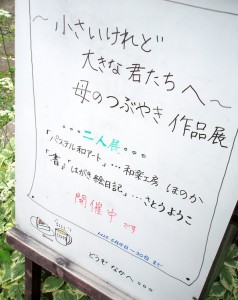 ～小さいけれど
大きな君たちへ～
母のつぶやき 作品展
。。。二人展。。。
「パステル和アート」…和楽工房 ほのか
「書」「はがき絵日記」…さとうようこ
開催中です
どうぞなかへ・・・